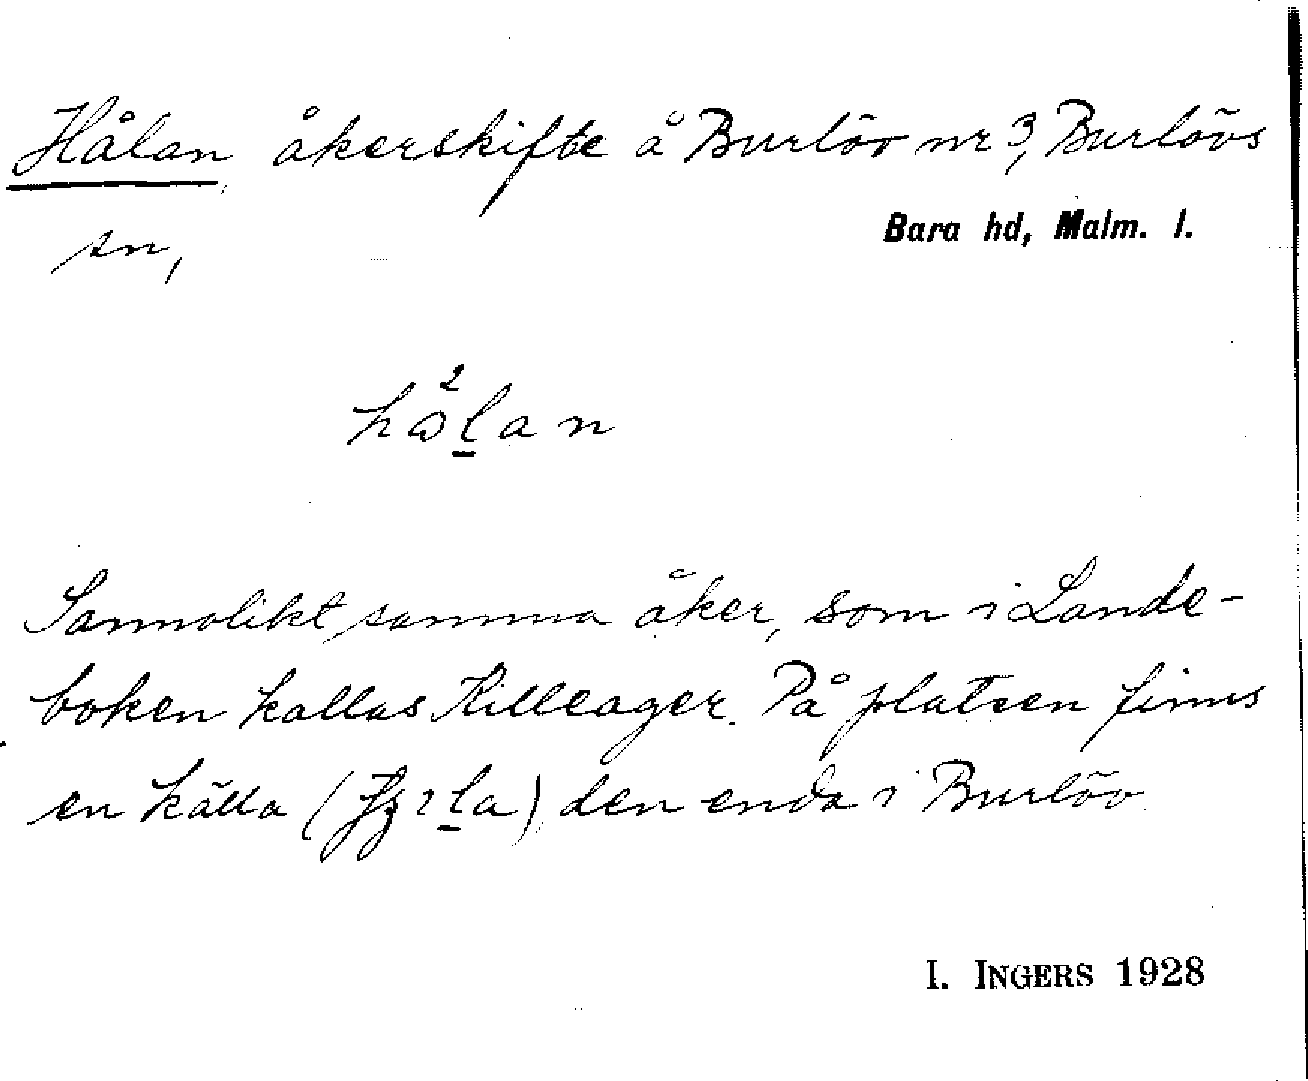 Hålan, åkerskifte å Burlöv nr 3, Burlövs
sn,
Bara hd, Malm. l.
Sannolikt samma åker, som i Lande-
boken kallas Killeager. På platsen finns
en källa ( ) den enda i Burlöv.
I. INGERS 1928